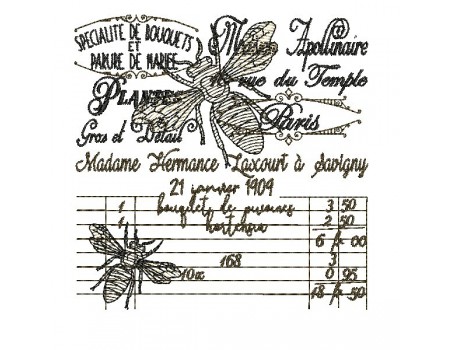 SPECIALITE DE BOUQUETS
ET
PARURE DE MARIEE
Maison Apollinaire
rue du Temple
PLANTES
Paris
Gros et Détail
Madame Hermance Laxcourt à Savigny
21 janvier 1904
1 bouquets de pivoines 3 50
1 hortensia 2 50
6 fr 00
168 3
10x 0 95
18 fr 50